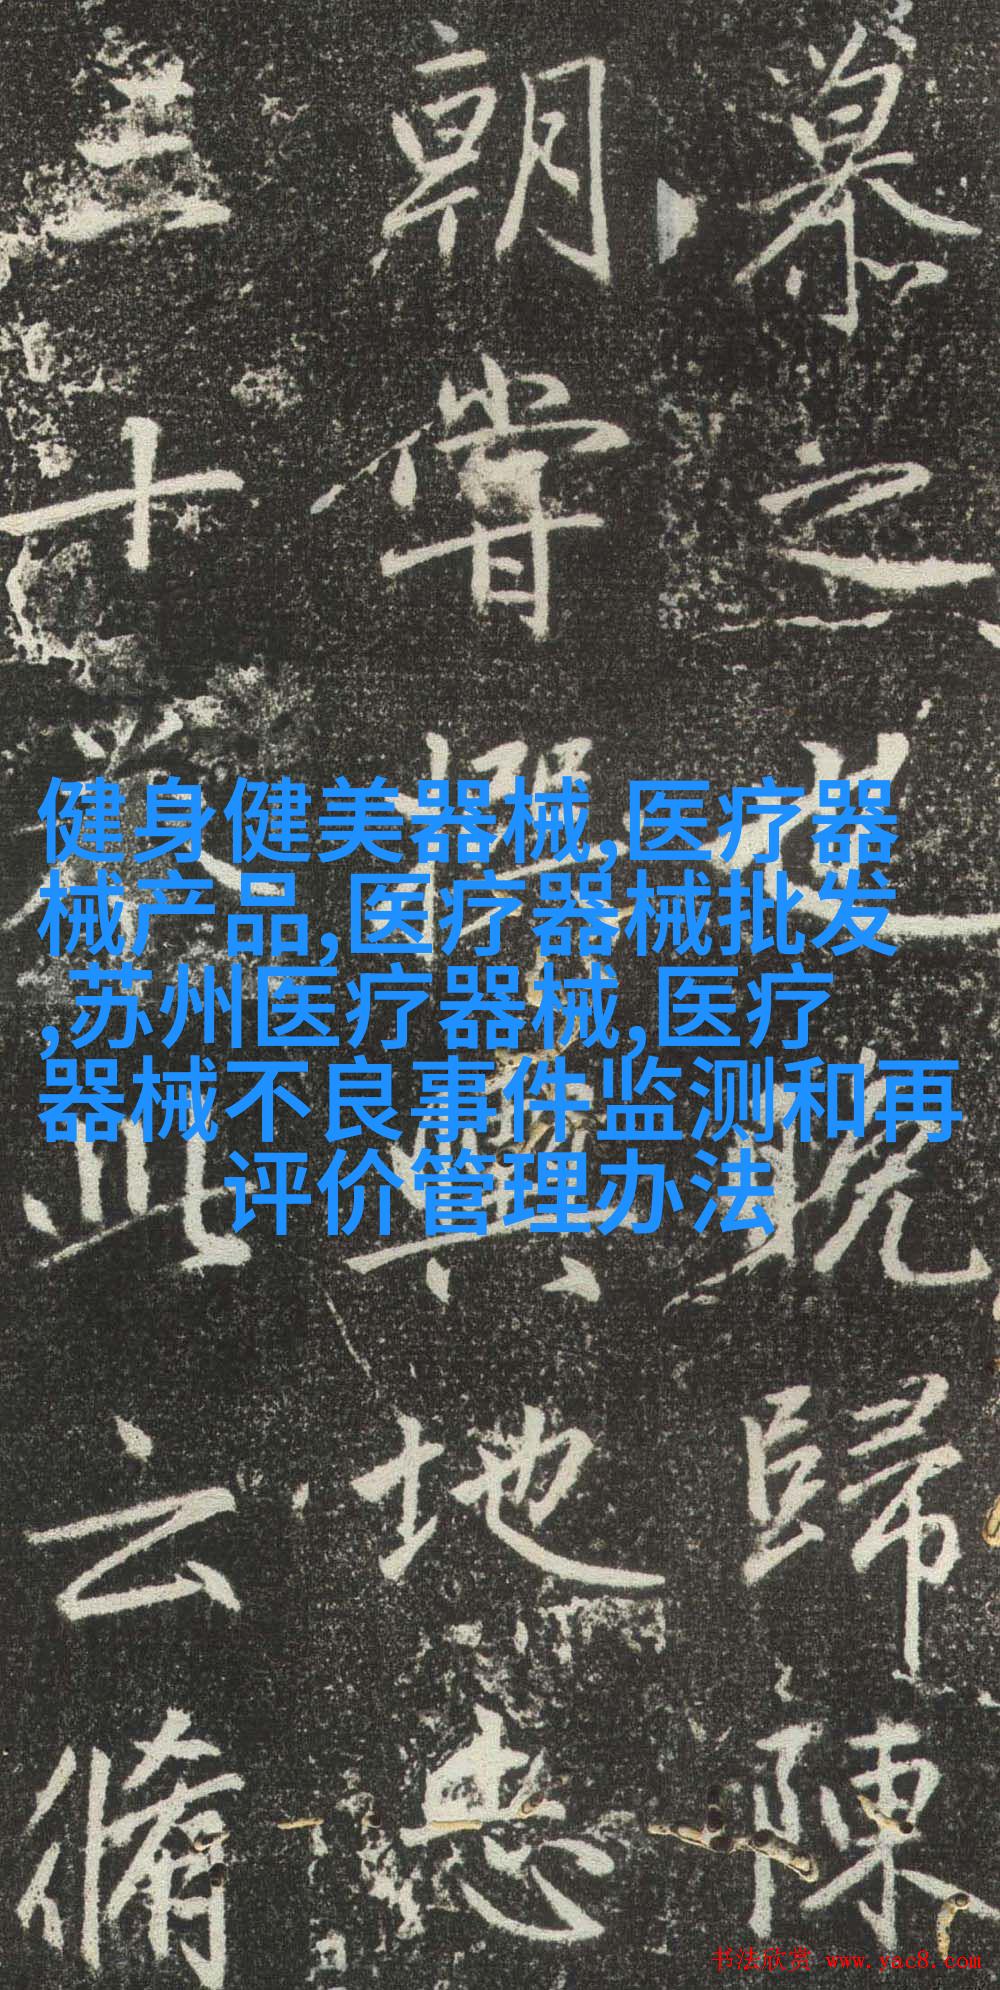 慕之也晚歸陳
朝嘗撰與地志
三十
云脩
健身健美器械,医疗器
械产品,医疗器械批发
,苏州医疗器械,医疗
器械不良事件监测和再
评价管理办法
书法欣赏 www.yac8.com